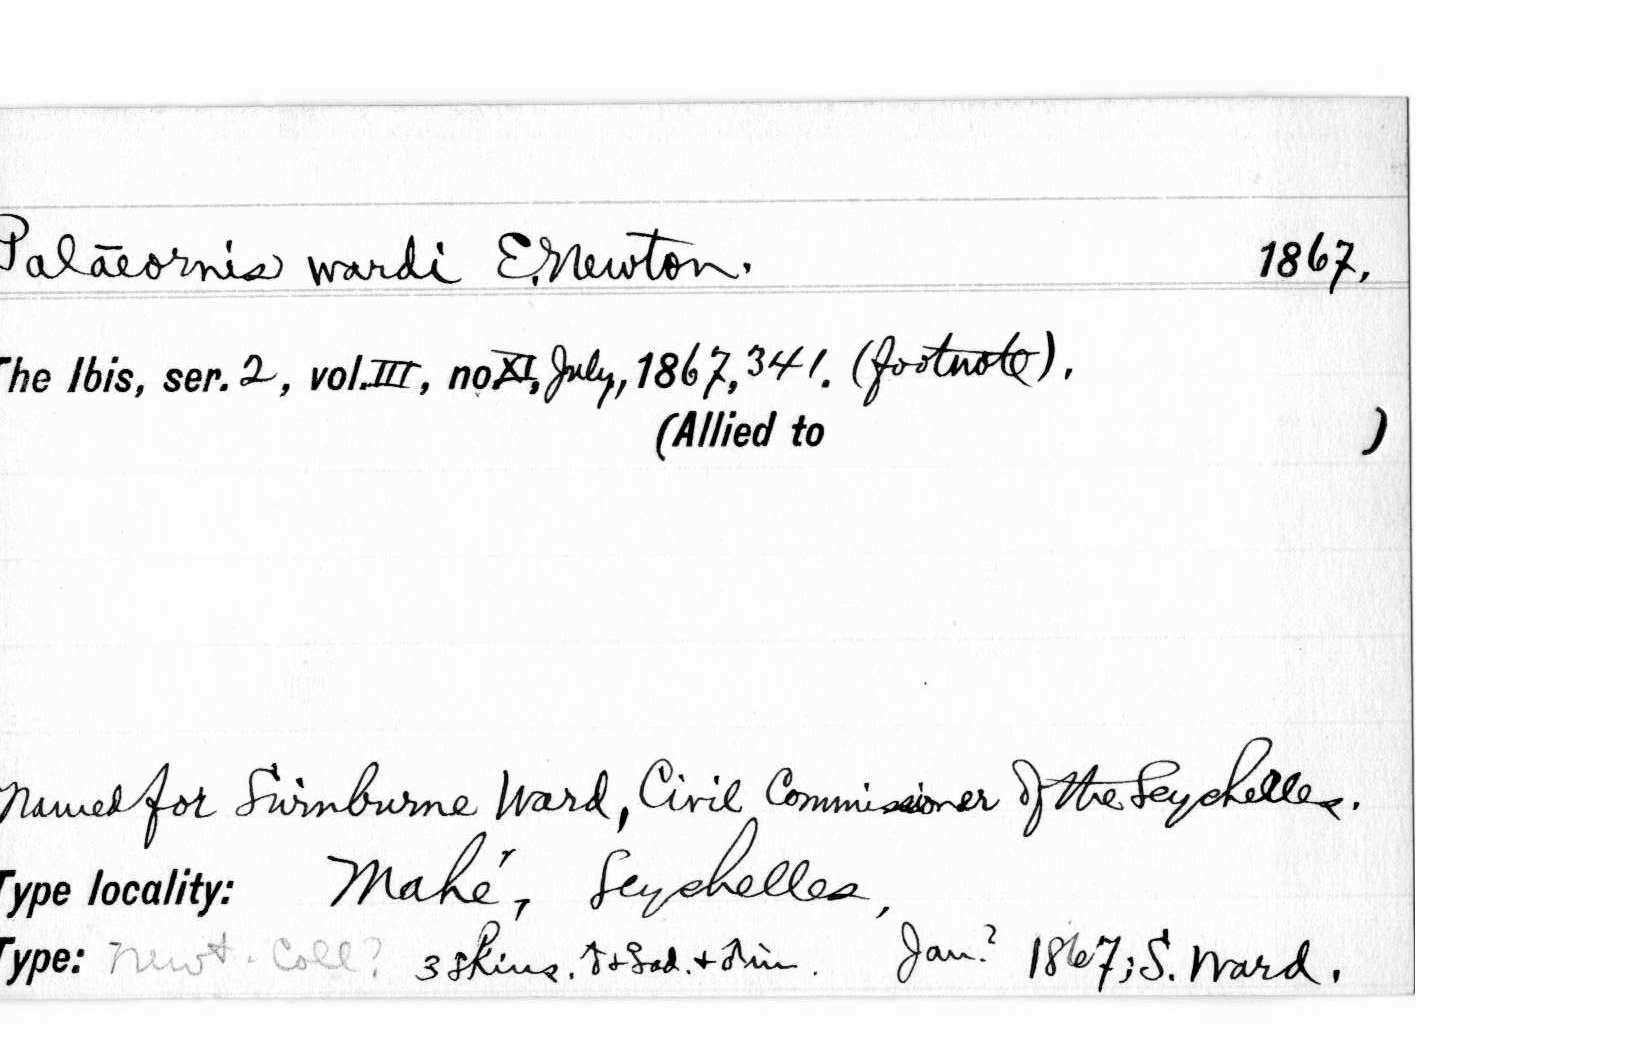 Palāeornis wardi E. Newton. 1867.
The Ibis, ser. 2, vol. III, no XI, July, 1867, 341. (footnote).
(Allied to )
Named for Swinburne Ward, Civil Commissioner of the Seychelles.
Type locality: Mahé, Seychelles,
Type: Newt. Coll? 3 skins. ♂ + ♀ ad. + ♂ im. Jan? 1867; S. Ward.